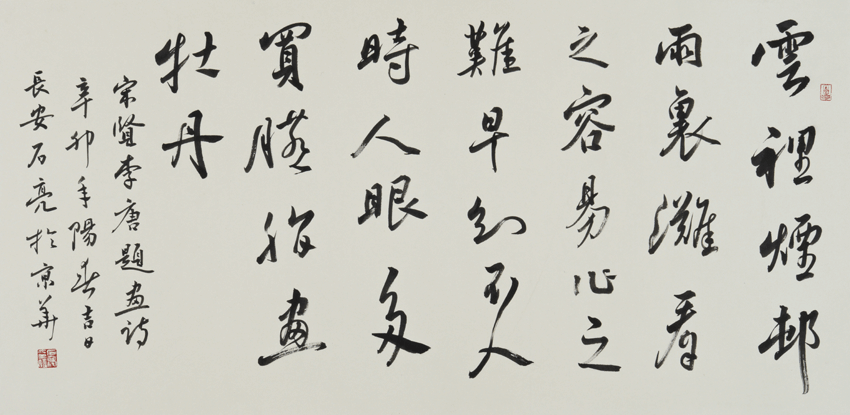 雲裡煙邨
雨裏灘看
之容易作之
難早知不入
時人眼多
買臙脂畫
牡丹
宋賢李唐題畫詩
辛卯年陽春吉日
長安石亮於京華